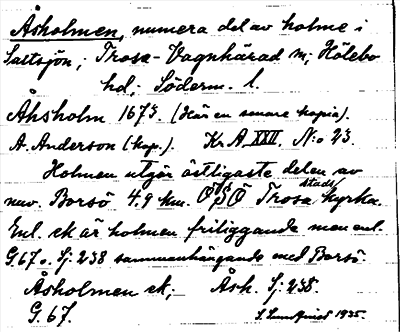 Åsholmen, numera del av holme i
Saltsjön; Trosa-Vagnhärad sn; Hölebo
hd; Söderm. l.
Åhsholm 1673. (Här en senare kopia).
A. Anderson (kop.). Kr. A. XXII. No 23.
Holmen utgör östligaste delen av
nuv. Borsö 4.9 km. OSO Trosa stads kyrka.
Enl. ek är holmen friliggande men enl.
G.67 o. Sj: 238 sammanhängande med Borsö.
Åsholmen ek; Åsh. Sj: 238.
G. 67. S. Lundqvist 1935.